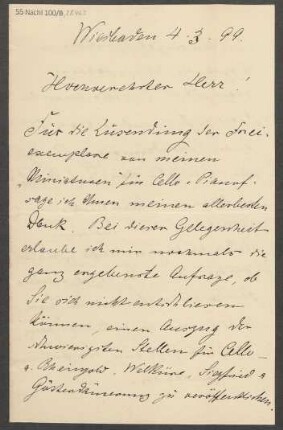 55 Nachl 100/B,
Wiesbaden 4. 3. 99.
Hochverehrter Herr!
Für die Zusendung der Frei-
exemplare von meinen
"Miniaturen" für Cello u. Pianof.
sage ich Ihnen meinen allerbesten
Dank. Bei dieser Gelegenheit
erlaube ich mir nochmals die
ganz ergebenste Anfrage, ob
Sie sich nicht entschliessen
können, einen Auszug der
schwierigsten Stellen für Cello
a. Rheingold, Walküre, Siegfried u.
Götterdämmerung zu veröffentlichen.